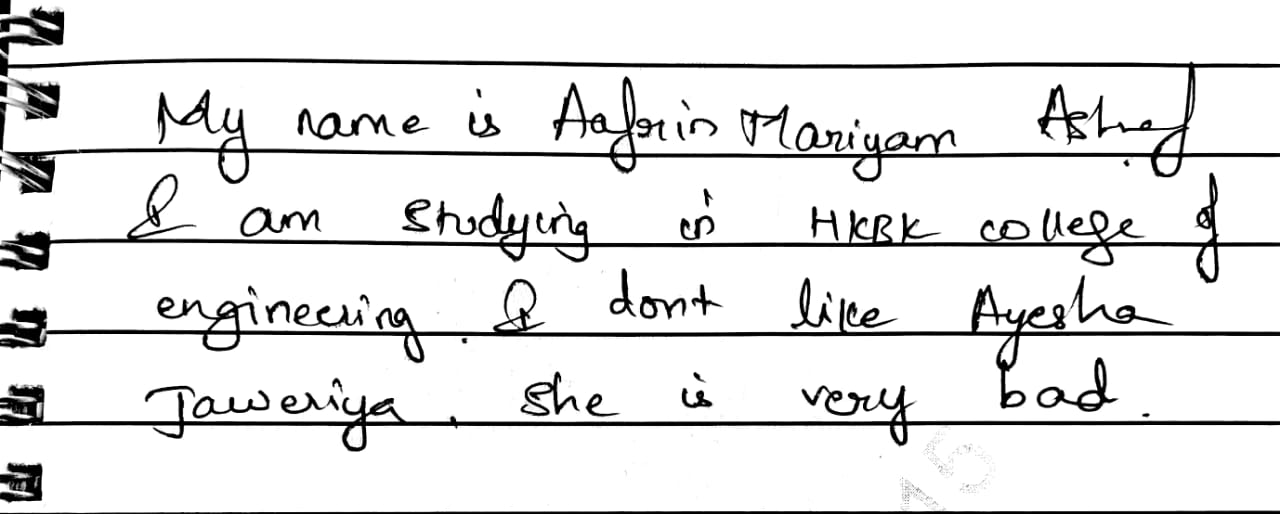 My name is Aafrin Mariyam Ashraf.
I am studying in HKBK college of
engineering. I dont like Ayesha
Jaweriya. She is very bad.
15